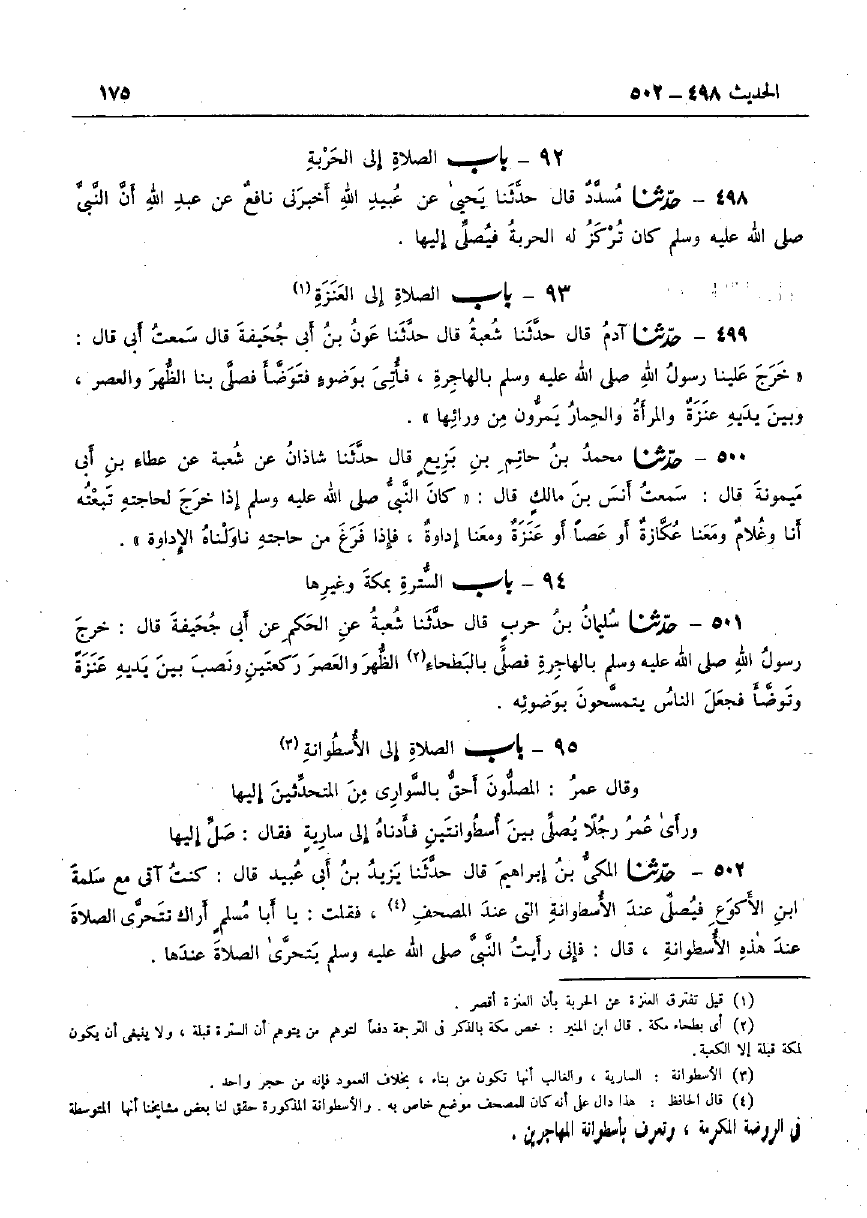 الحديث ٤٩٨ – ٥٠٢ ١٧٥
٩٢ – باب الصلاةِ إلى الحَرْبةِ
٤٩٨ – حدّثنا مُسدَّدٌ قال حدَّثَنا يَحيىٰ عن عُبيدِ اللهِ أخبرَنى نافعٌ عن عبدِ اللهِ أنَّ النَّبيَّ
صلى الله عليه وسلم كان تُرْكَزُ له الحربةُ فيُصلِّى إليها .
٩٣ – باب الصلاةِ إلى العَنَزَةِ (١)
٤٩٩ – حدّثنا آدمُ قال حدَّثَنا شُعبةُ قال حدَّثَنا عَونُ بنُ أبى جُحَيفةَ قال سَمعتُ أبى قال :
« خَرَجَ عَلينا رسولُ اللهِ صلى الله عليه وسلم بالهاجِرةِ ، فأُتِىَ بوَضوءٍ فتَوَضَّأَ فصلَّى بنا الظُّهرَ والعصر ،
وبينَ يدَيهِ عنَزَةٌ والمرأةُ والحِمارُ يَمرُّونَ مِن ورائِها » .
٥٠٠ – حدّثنا محمدُ بنُ حاتِمِ بنِ بَزِيعٍ قال حدَّثَنا شاذانُ عن شُعبة عن عطاءِ بنِ أبى
مَيمونةَ قال : سَمعتُ أنسَ بنَ مالكٍ قال : « كانَ النَّبىُّ صلى الله عليه وسلم إذا خرَجَ لحاجتهِ تَبِعْتُه
أنا وغُلامٌ ومَعَنا عُكَّازةٌ أو عَصاً أو عَنَزَةٌ ومعَنا إداوةٌ ، فإذا فَرَغَ من حاجتهِ ناوَلْناهُ الإداوة » .
٩٤ – باب السُّترةِ بمكةَ وغيرِها
٥٠١ – حدّثنا سُليمانُ بنُ حربٍ قال حدَّثَنا شُعبةُ عنِ الحَكمِ عن أبى جُحَيفةَ قال : خرجَ
رسولُ اللهِ صلى الله عليه وسلم بالهاجِرةِ فصلَّى بالبَطحاءِ (٢) الظُّهرَ والعَصرَ رَكعتَينِ ونَصبَ بينَ يَديهِ عَنَزَةً
وتَوضَّأَ فجعَلَ الناسُ يتمسَّحونَ بوَضوئِه .
٩٥ – باب الصلاةِ إلى الأُسطُوانةِ (٣)
وقال عمرُ : المصلُّونَ أحقُّ بالسَّوارِى مِنَ المتحدِّثينَ إليها
ورأىٰ عُمرُ رجُلًا يُصلِّى بينَ أُسطُوانتَينِ فأدناهُ إلى ساريةٍ فقال : صَلِّ إليها
٥٠٢ – حدّثنا المكىُّ بنُ إبراهيمَ قال حدَّثَنا يَزيدُ بنُ أبى عُبيد قال : كنتُ آتى مع سَلمةَ
ابنِ الأكوَعِ فيُصلِّى عندَ الأُسطوانةِ التى عندَ المصحفِ (٤) ، فقلت : يا أبا مُسلمٍ أراك تتَحرَّى الصلاةَ
عندَ هٰذهِ الأُسطوانةِ ، قال : فإنى رأيتُ النَّبىَّ صلى الله عليه وسلم يَتحرَّىٰ الصلاةَ عندَها .
(١) قيل تفترق العنزة عن الحربة بأن العنزة أقصر .
(٢) أى بطحاء مكة . قال ابن المنير : خص مكة بالذكر فى الترجمة دفعاً لتوهم من يتوهم أن السترة قبلة ، ولا ينبغى أن يكون
لمكة قبلة إلا الكعبة.
(٣) الأسطوانة : السارية ، والغالب أنها تكون من بناء ، بخلاف العمود فإنه من حجر واحد .
(٤) قال الحافظ : هذا دال على أنه كان للمصحف موضع خاص به . والأسطوانة المذكورة حقق لنا بعض مشايخنا أنها المتوسطة
فى الروضة المكرمة ، وتعرف بأسطوانة المهاجرين .